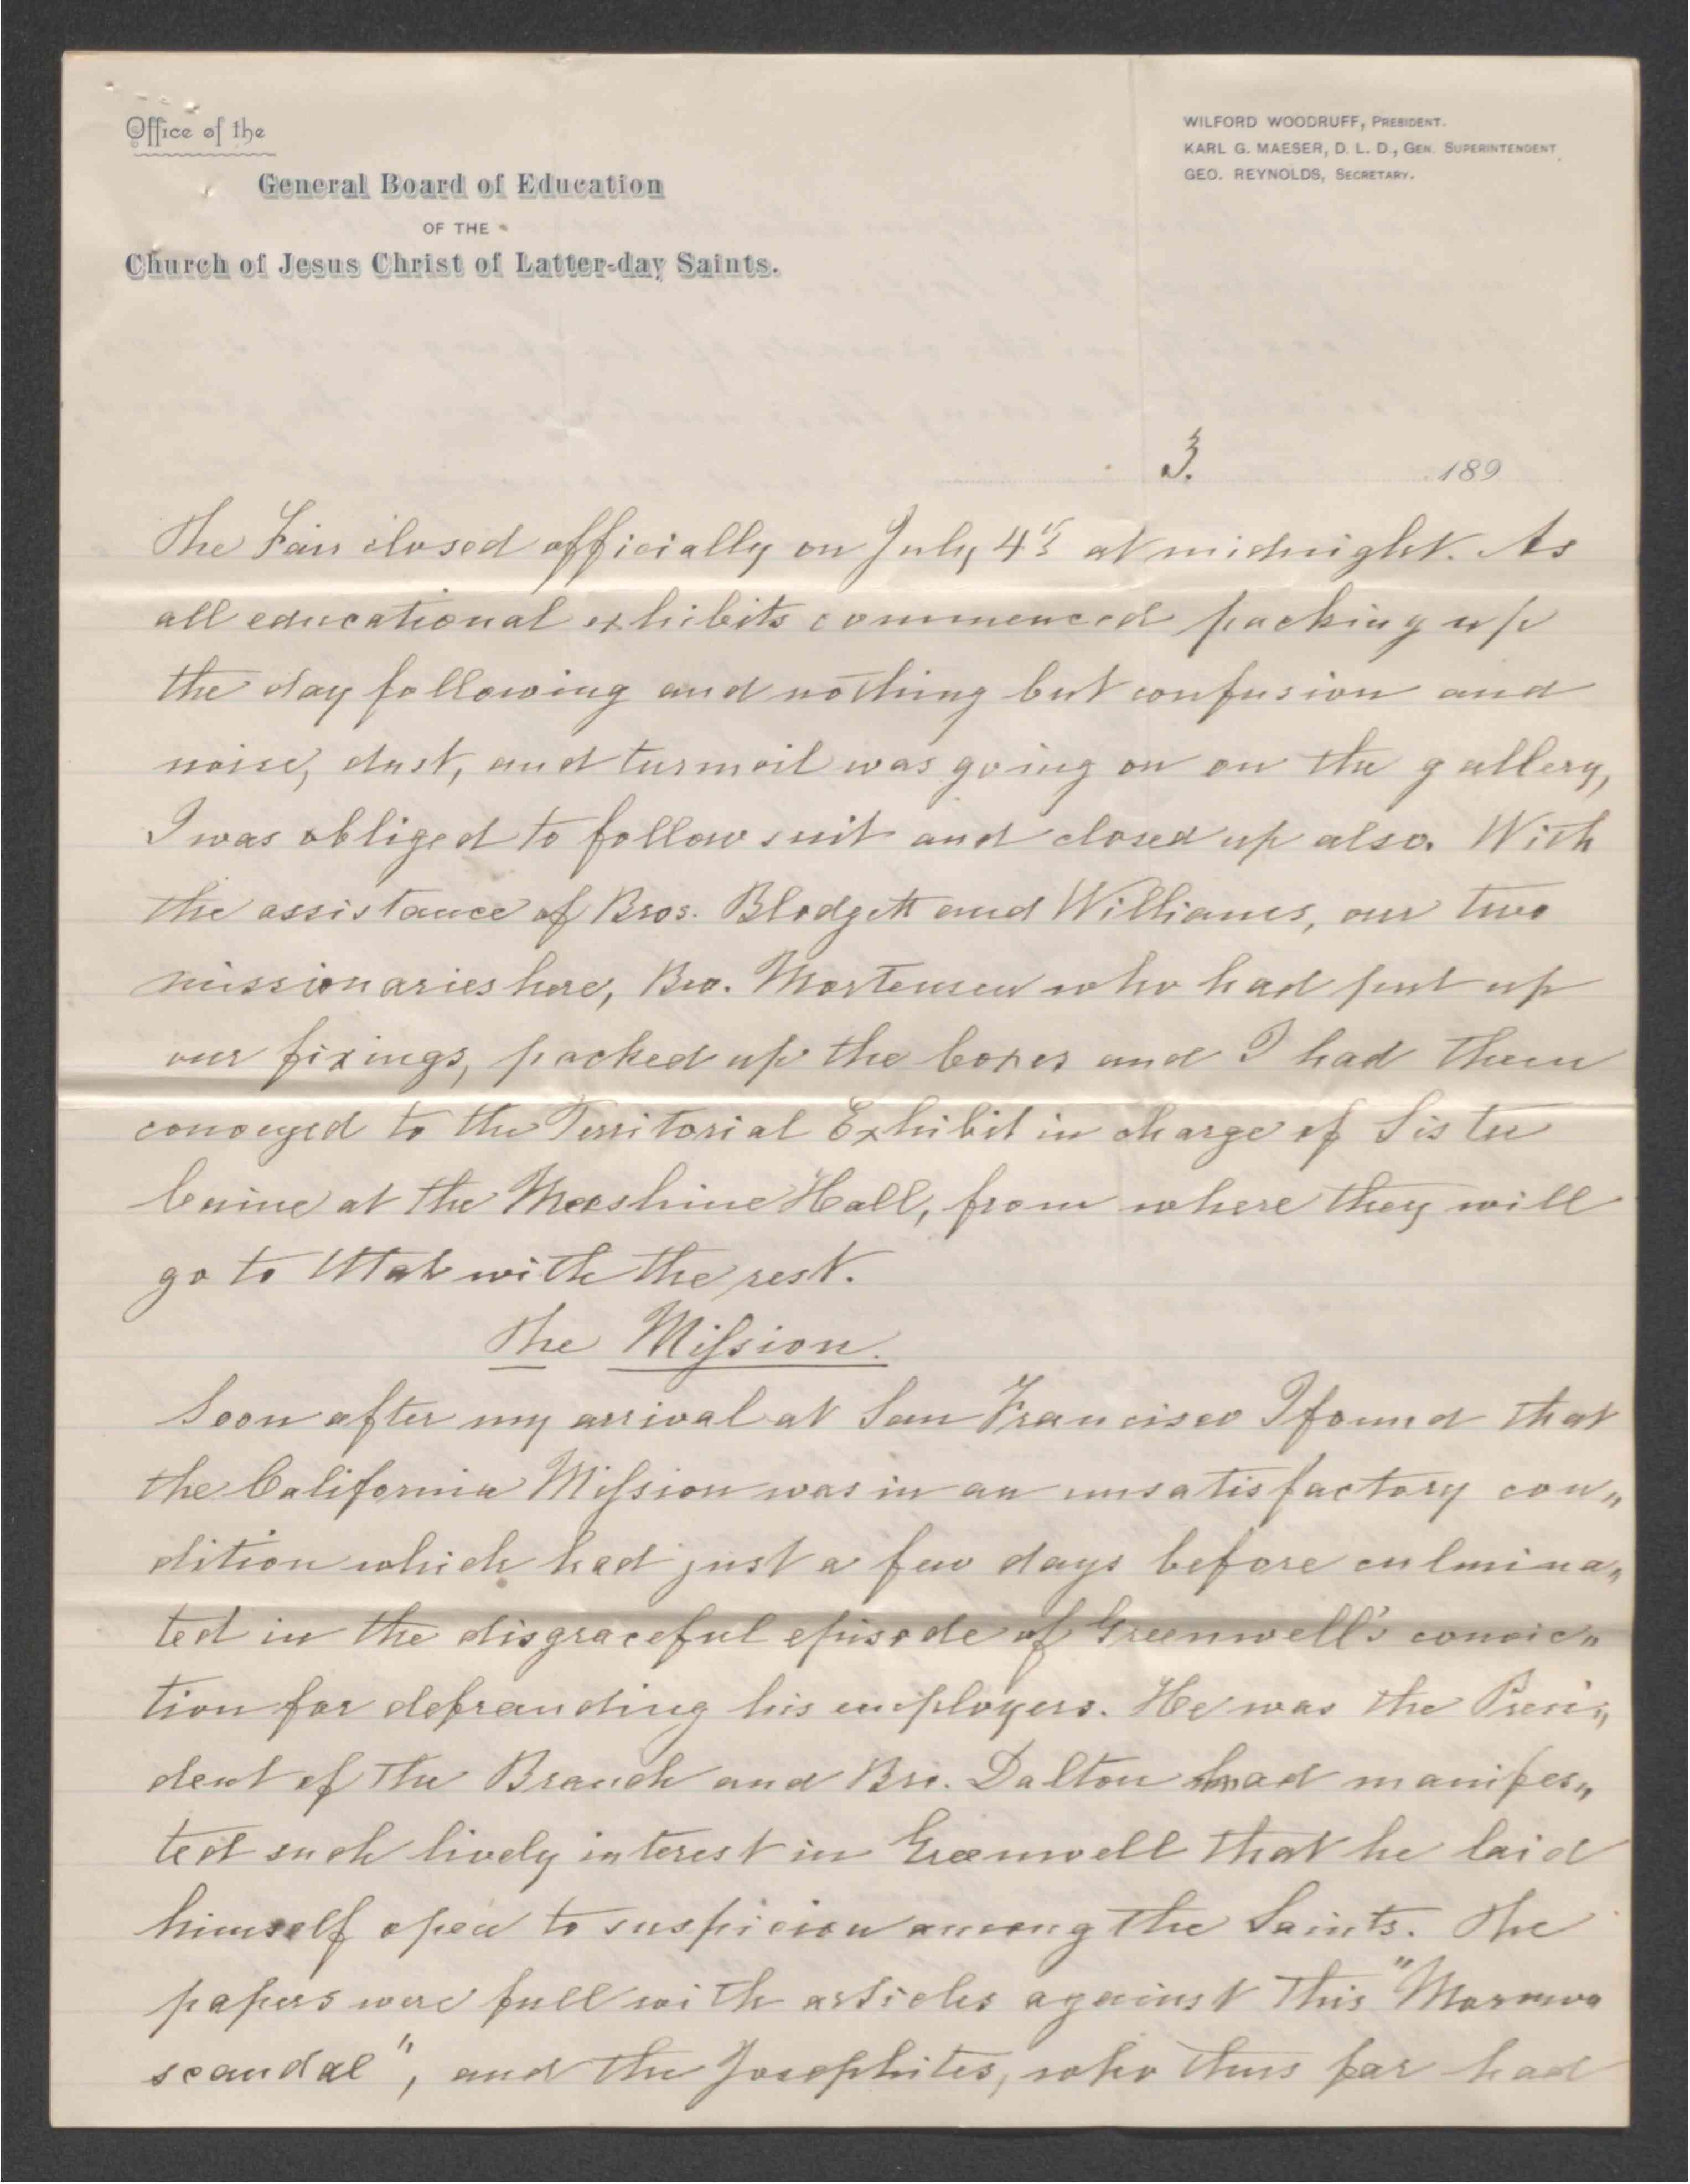 Office of the
General Board of Education
OF THE
Church of Jesus Christ of Latter-day Saints.
WILFORD WOODRUFF, PRESIDENT.
KARL G. MAESER, D. L. D., GEN. SUPERINTENDENT
GEO. REYNOLDS, SECRETARY.
3. 189
The Fair closed officially on July 4th at midnight. As
all educational exhibits commenced packing up
the day following and nothing but confusion and
noise, dust, and turmoil was going on on the gallery,
I was obliged to follow suit and closed up also. With
the assistance of Bros. Blodgett and Williams, our two
missionaries here, Bro. Mortensen who had put up
our fixings, packed up the boxes and I had them
conveyed to the Territorial Exhibit in charge of Sister
Caine at the Hall, from where they will
go to Utah with the rest.
The Mission.
Soon after my arrival at San Francisco I found that
the California Mission was in an unsatisfactory con„
dition which had just a few days before culmina„
ted in the disgraceful episode of Greenwell's convic„
tion for defrauding his employers. He was the Presi„
dent of the Branch and Bro. Dalton had manifes„
ted such lively interest in Greenwell that he laid
himself open to suspicion among the Saints. The
papers were full with articles against this "Mormon
scandal", and the Josephites, who thus far had